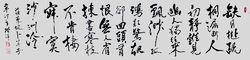 缺月挂疏
桐漏断人
初静
幽人獨往來
缥缈孤
鴻影驚起
却回頭有
恨無人省
揀盡寒枝
不肯棲
寂寞
沙洲冷